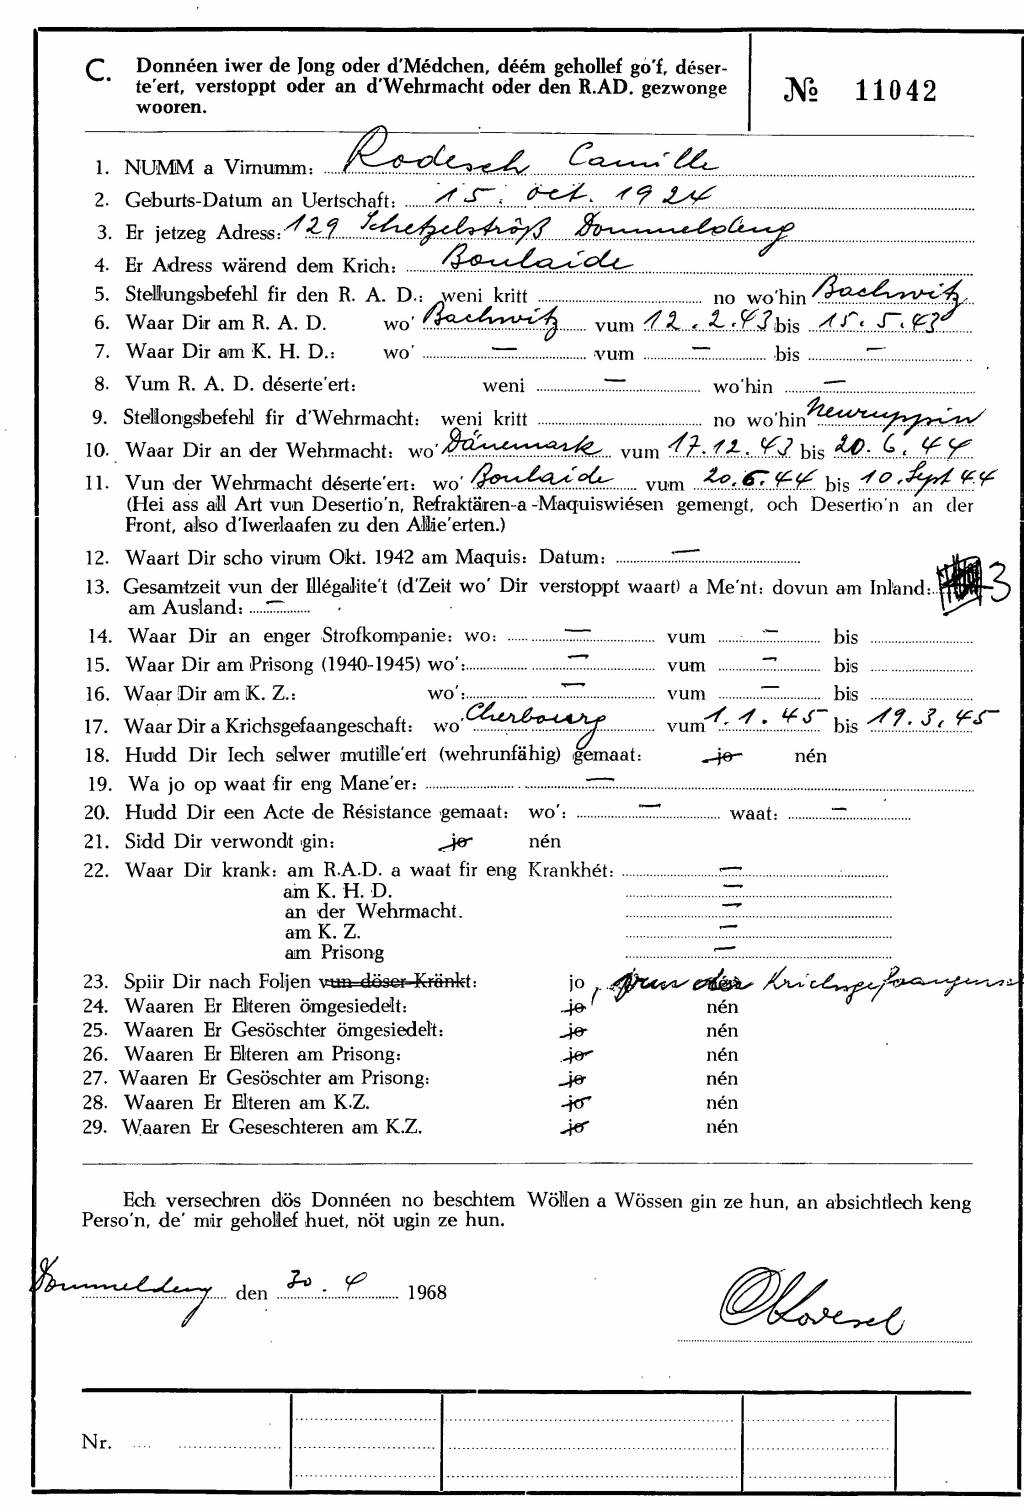 C. Donnéen iwer de Jong oder d'Médchen, déém gehollef go'f, déser-
te'ert, verstoppt oder an d'Wehrmacht oder den R.AD. gezwonge
wooren.
№ 11042
1. NUMM a Virnumm: Rodesch Camille
2. Geburts-Datum an Uertschaft: 15. oct. 1924
3. Er jetzeg Adress: 129 Schetzelströß Dommeldeng
4. Er Adress wärend dem Krich: Boulaide
5. Stellungsbefehl fir den R. A. D.: weni kritt no wo'hin Bachwitz
6. Waar Dir am R. A. D. wo' Bachwitz vum 12.2.43 bis 15.5.43
7. Waar Dir am K. H. D.: wo' — vum — bis —
8. Vum R. A. D. déserte'ert: weni — wo'hin —
9. Stellongsbefehl fir d'Wehrmacht: weni kritt no wo'hin Neuruppin
10. Waar Dir an der Wehrmacht: wo' Dänemark vum 17.12.43 bis 20.6.44
11. Vun der Wehrmacht déserte'ert: wo' Boulaide vum 20.6.44 bis 10.Sept 44
(Hei ass all Art vun Desertio'n, Refraktären-a-Maquiswiésen gemengt, och Desertio'n an der
Front, also d'Iwerlaafen zu den Allie'erten.)
12. Waart Dir scho virum Okt. 1942 am Maquis: Datum: —
13. Gesamtzeit vun der Illégalite't (d'Zeit wo' Dir verstoppt waart) a Me'nt: dovun am Inland: 3
am Ausland: —
14. Waar Dir an enger Strofkompanie: wo: — vum — bis
15. Waar Dir am Prisong (1940-1945) wo': — vum — bis
16. Waar Dir am K. Z.: wo': — vum — bis
17. Waar Dir a Krichsgefaangeschaft: wo' Cherbourg vum 1.1.45 bis 19.3.45
18. Hudd Dir Iech selwer mutille'ert (wehrunfähig) gemaat: jo nén
19. Wa jo op waat fir eng Mane'er: —
20. Hudd Dir een Acte de Résistance gemaat: wo': — waat: —
21. Sidd Dir verwondt gin: jo nén
22. Waar Dir krank: am R.A.D. a waat fir eng Krankhét: —
am K. H. D. —
an der Wehrmacht. —
am K. Z. —
am Prisong —
23. Spiir Dir nach Foljen vun döser Kränkt: jo, vun der
24. Waaren Er Elteren ömgesiedelt: jo nén
25. Waaren Er Gesöschter ömgesiedelt: jo nén
26. Waaren Er Elteren am Prisong: jo nén
27. Waaren Er Gesöschter am Prisong: jo nén
28. Waaren Er Elteren am K.Z. jo nén
29. Waaren Er Geseschteren am K.Z. jo nén
Ech versechren dös Donnéen no beschtem Wöllen a Wössen gin ze hun, an absichtlech keng
Perso'n, de' mir gehollef huet, nöt ugin ze hun.
Dommeldeng den 30.4 1968
Nr.